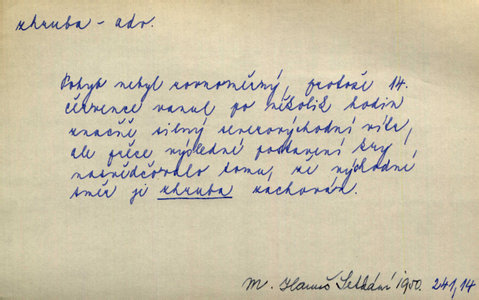 zhruba – adv.
Pohyb nebyl rovnoměrný, protože 14.
července vanul po několik hodin
značně silný severovýchodní vítr,
ale přece výsledné postavení kry
nasvědčovalo tomu, že východní
směr je zhruba zachován.
M. Hanuš Setkání 1950. 241,14